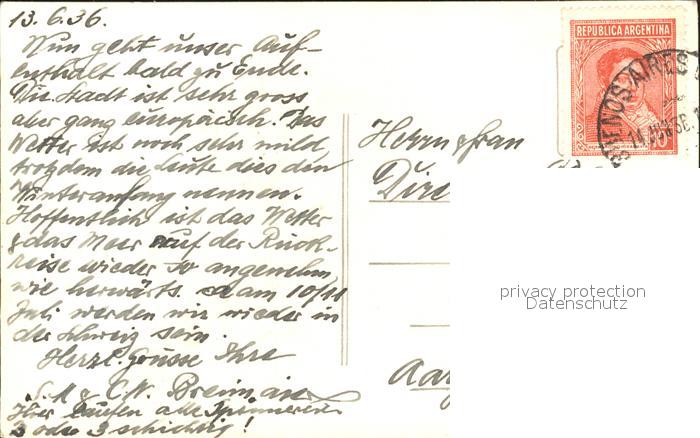 13.6.36.
Nun geht unser Auf-
enthalt bald zu Ende.
Die Stadt ist sehr gross
aber ganz europäisch. Das
Wetter ist noch sehr mild
trotzdem die Leute dies den
Winteranfang nennen.
Hoffentlich ist das Wetter
& das Meer auf der Rück-
reise wieder so angenehm
wie herwärts. am 10/11
Juli werden wir wieder in
der Schweiz sein.
Herzl. Grüsse Ihre
S. M & C. W.
Hier laufen alle Spinnereien
2 oder 3 schichtig!
REPUBLICA ARGENTINA
BUENOS AIRES
14 JUN 36
10
Herrn & Frau
Dire
Aar
privacy protection
Datenschutz